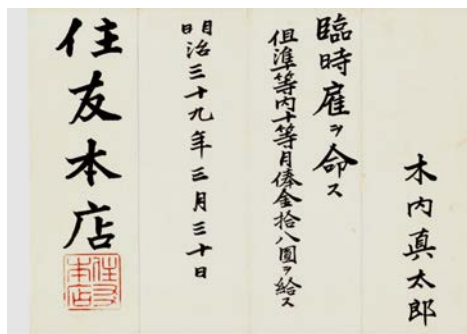 木内真太郎
臨時雇ヲ命ス
但準等内十等月俸金拾八圓ヲ給ス
明治三十九年三月三十日
住友本店
住友
本店